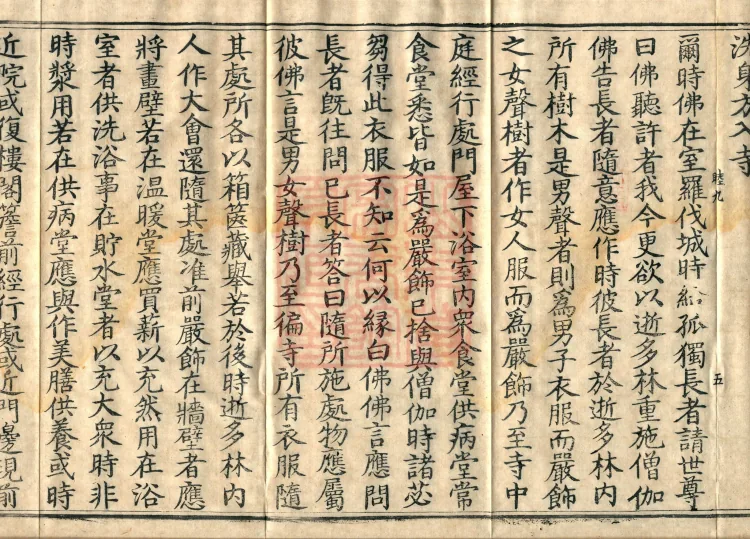 洗身方入寺
睦九
五
爾時佛在室羅伐城時給孤獨長者請世尊
曰佛聽許者我今更欲以逝多林重施僧伽
佛告長者隨意應作時彼長者於逝多林内
所有樹木是男聲者則爲男子衣服而嚴飾
之女聲樹者作女人服而爲嚴飾乃至寺中
庭經行處門屋下浴室内衆食堂供病堂常
食堂悉皆如是爲嚴飾已捨與僧伽時諸苾
芻得此衣服不知云何以緣白佛佛言應問
長者旣往問已長者答曰隨所施處物應屬
彼佛言是男女聲樹乃至徧寺所有衣服隨
其處所各以箱篋藏舉若於後時逝多林内
人作大會還隨其處准前嚴飾在牆壁者應
將畫壁若在温暖堂應買薪以充然用在浴
室者供洗浴事在貯水堂者以充大衆時非
時漿用若在供病堂應與作美膳供養或時
近院或復樓閣簷前經行處或近門邊現前